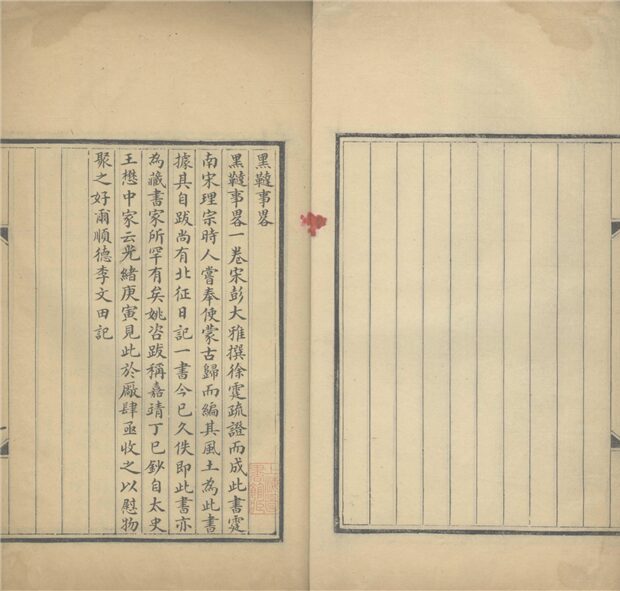 黑韃事畧
黑韃事畧一卷宋彭大雅撰徐霆疏證而成此書霆
南宋理宗時人嘗奉使蒙古歸而編其風土為此書
據其自跋尚有北征日記一書今已久佚即此書亦
為藏書家所罕有矣姚咨跋稱嘉靖丁巳鈔自太史
王懋中家云光緒庚寅見此於廠肆亟收之以慰物
聚之好爾順德李文田記